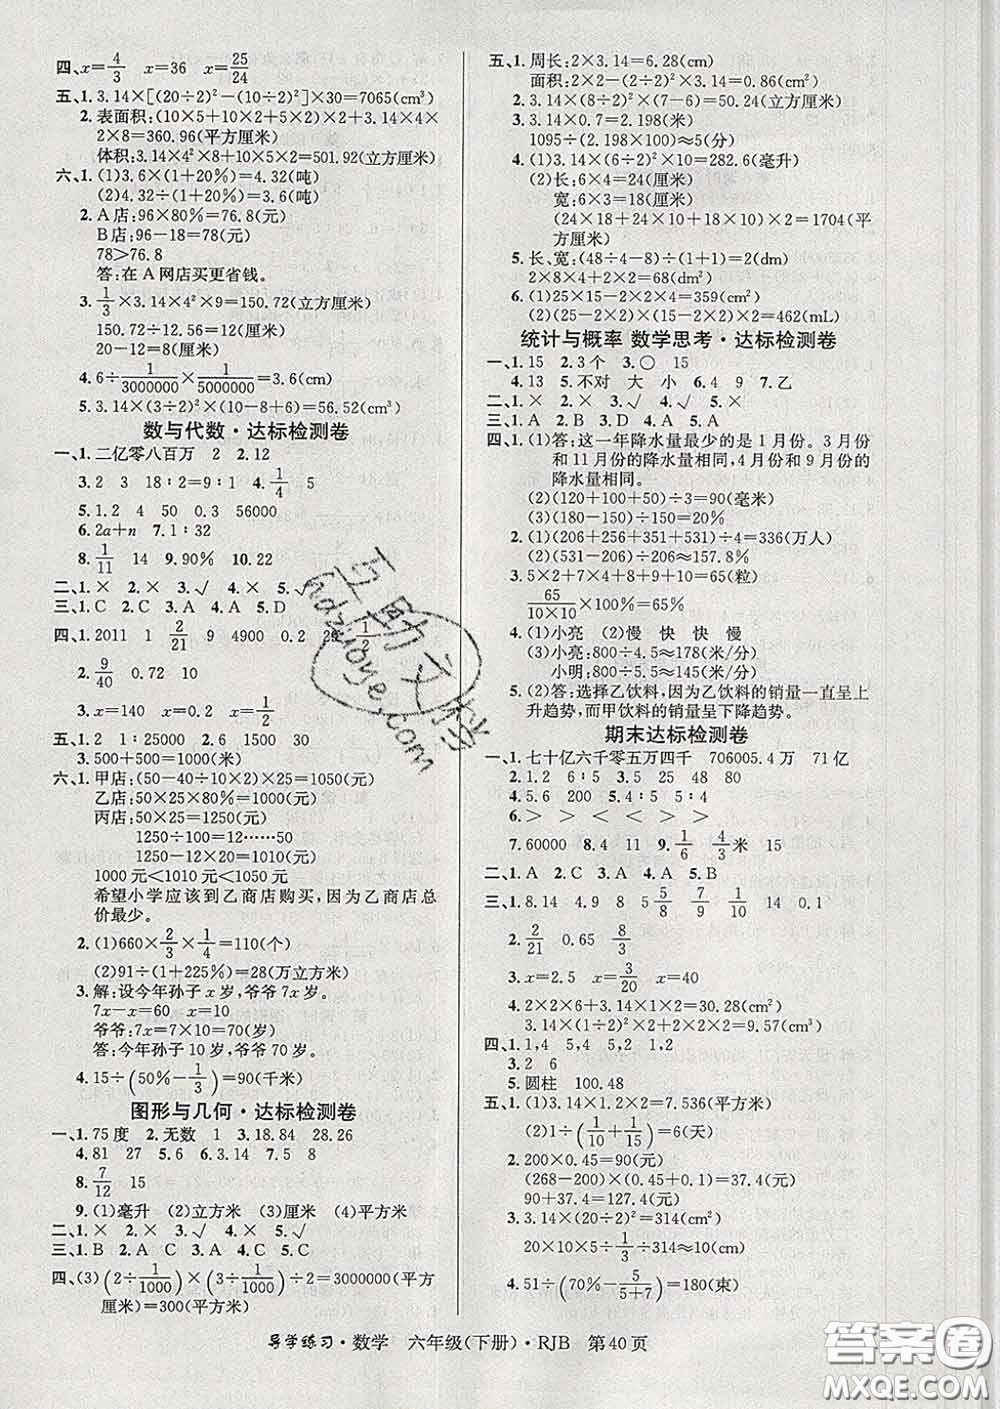 四、x=4/3 x=36 x=25/24
五、1. 3.14×[(20÷2)²-(10÷2)²]×30=7065(cm³)
2. 表面积:(10×5+10×2+5×2)×2+3.14×4×
2×8=360.96(平方厘米)
体积:3.14×4²×8+10×5×2=501.92(立方厘米)
六、1. (1)3.6×(1+20%)=4.32(吨)
(2)4.32÷(1+20%)=3.6(吨)
2. A店:96×80%=76.8(元)
B店:96-18=78(元)
78>76.8
答:在A网店买更省钱。
3. 1/3×3.14×4²×9=150.72(立方厘米)
150.72÷12.56=12(厘米)
20-12=8(厘米)
4. 6÷1/3000000×1/5000000=3.6(厘米)
5. 3.14×(3÷2)²×(10-8+6)=56.52(cm³)
数与代数·达标检测卷
一、1. 二亿零八百万 2 2. 12
3. 2 3 18∶2=9∶1 4. 1/4 5
5. 1.2 4 50 0.3 56000
6. 2a+n 7. 1∶32
8. 1/11 14 9. 90% 10. 22
二、1. × 2. × 3. √ 4. × 5. √
三、1. C 2. C 3. A 4. A 5. D
四、1. 2011 1 2/21 9 4900 0.2 29 1/2
2. 9/40 0.72 10
3. x=140 x=0.2 x=1/2
五、1. 2 1∶25000 2. 6 1500
3. 500+500=1000(米)
六、1. 甲店:(50-40÷10×2)×25=1050(元)
乙店:50×25×80%=1000(元)
丙店:50×25=1250(元)
1250÷100=12……50
1250-12×20=1010(元)
1000元<1010元<1050元
希望小学应该到乙商店购买,因为乙商店总
价最少。
2. (1)660×2/3×1/4=110(个)
(2)91÷(1+225%)=28(万立方米)
3. 解:设今年孙子x岁,爷爷7x岁。
7x-x=60 x=10
爷爷:7x=7×10=70(岁)
答:今年孙子10岁,爷爷70岁。
4. 15÷(50%-1/3)=90(千米)
图形与几何·达标检测卷
一、1. 75度 2. 无数 1 3. 18.84 28.26
4. 81 27 5. 6 6. 3∶14 7. 5 8
8. 7/12 15
9. (1)毫升 (2)立方米 (3)厘米 (4)平方米
二、1. × 2. × 3. √ 4. √ 5. ×
三、1. B 2. A C 3. A 4. C 5. C
四、(3)(2÷1/1000)×(3÷1/1000)÷2=3000000(平方
厘米)=300(平方米)
五、1. 周长:2×3.14=6.28(cm)
面积:2×2-(2÷2)²×3.14=0.86(cm²)
2. 3.14×(8÷2)²×(7-6)=50.24(立方厘米)
3. 3.14×0.7=2.198(米)
1095÷(2.198×100)≈5(分)
4. (1)3.14×(6÷2)²×10=282.6(毫升)
(2)长:6×4=24(厘米)
宽:6×3=18(厘米)
(24×18+24×10+18×10)×2=1704(平
方厘米)
5. 长、宽:(48÷4-8)÷(1+1)=2(dm)
2×8×4+2×2=68(dm²)
6. (1)25×15-2×2×4=359(cm²)
(2)(25-2×2)×(15-2×2)×2=462(mL)
统计与概率 数学思考·达标检测卷
一、1. 15 2. 3个 3. ○ 15
4. 13 5. 不对 大 小 6. 4 9 7. 乙
二、1. × 2. × 3. √ 4. √ 5. ×
三、1. A 2. B 3. D 4. A 5. A
四、1. (1)答:这一年降水量最少的是1月份。3月份
和11月份的降水量相同,4月份和9月份的
降水量相同。
(2)(120+100+50)÷3=90(毫米)
(3)(180-150)÷150=20%
2. (1)(206+256+351+531)÷4=336(万人)
(2)(531-206)÷206≈157.8%
3. 5×2+7×4+8+6×4=65(粒)
65/10×10×100%=65%
4. (1)小亮 (2)慢 快 快 慢
(3)小亮:800÷4.5≈178(米/分)
小明:800÷5.5≈145(米/分)
5. (2)答:选择乙饮料,因为乙饮料的销量一直呈上
升趋势,而甲饮料的销量呈下降趋势。
期末达标检测卷
一、1. 七十亿六千零五万四千 706005.4万 71亿
2. 1.2 6∶5 3. 5 25 48 80
4. 5.6 200 5. 4∶5 4∶5
6. < > > < > >
7. 60000 8. 30 9. 4 1/6 4/3米 15
二、1. A 2. C 3. C 4. A 5. B
三、1. 8.14 4.9 8 5/8 7/9 1/10 14 0.1
2. 2/21 0.65 8/3
3. x=2.5 x=3/20 x=40
4. 2×2×6+3.14×1×2=30.28(cm²)
3.14×(1÷2)²×2+2×2×2=9.57(cm³)
四、1. 1,4 5,4 5,2 1,2
3. 2 6
5. 圆柱 100.48
五、1. (1)3.14×1.2×2=7.536(平方米)
(2)1÷(1/10+1/15)=6(天)
2. 200×0.45=90(元)
(268-200)×(0.45+0.1)=37.4(元)
90+37.4=127.4(元)
3. 3.14×(20÷2)²=314(cm²)
20×10×5÷1/3÷314≈10(cm)
4. 51÷(70%-5/5+7)=180(束)
导学练习·数学 六年级(下册)·RJB 第40页
互助文档
hdzuoye.com
答案圈
MXQE.COM